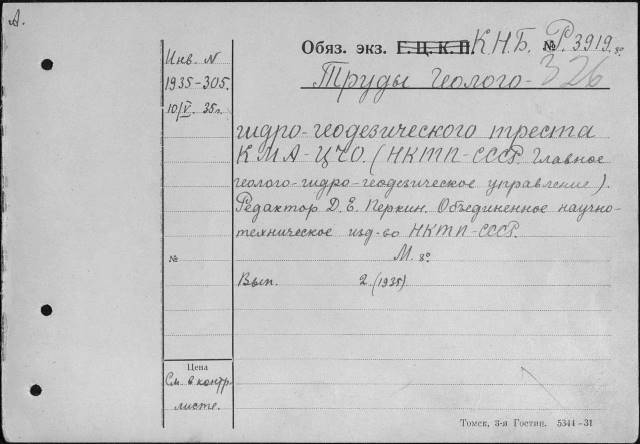 А.
Обяз. экз. Г.Ц.К.П. К.Н.Б. № Р. 3919. 8°
326
Инв. N
1935-305.
10/V. 35г.
Труды Геолого-
гидро-геодезического треста
КМА-ЦЧО. (НКТП-СССР. Главное
геолого-гидро-геодезическое управление).
Редактор Д. Е. Перкин. Объединенное научно-
техническое изд-во НКТП-СССР.
№ М. 8°
Вып. 2. (1935).
Цена
См. в контр.
листе.
Томск, 3-я Гостип. 5344-31